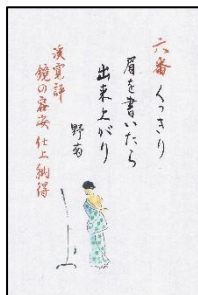 六番 くっきり
眉を書いたら
出来上がり
野菊
渓寛評
鏡の容姿 仕上納得